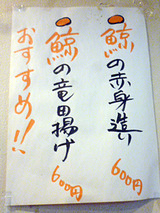 鯨の赤身造り
600円
鯨の竜田揚げ
600円
おすすめ!!